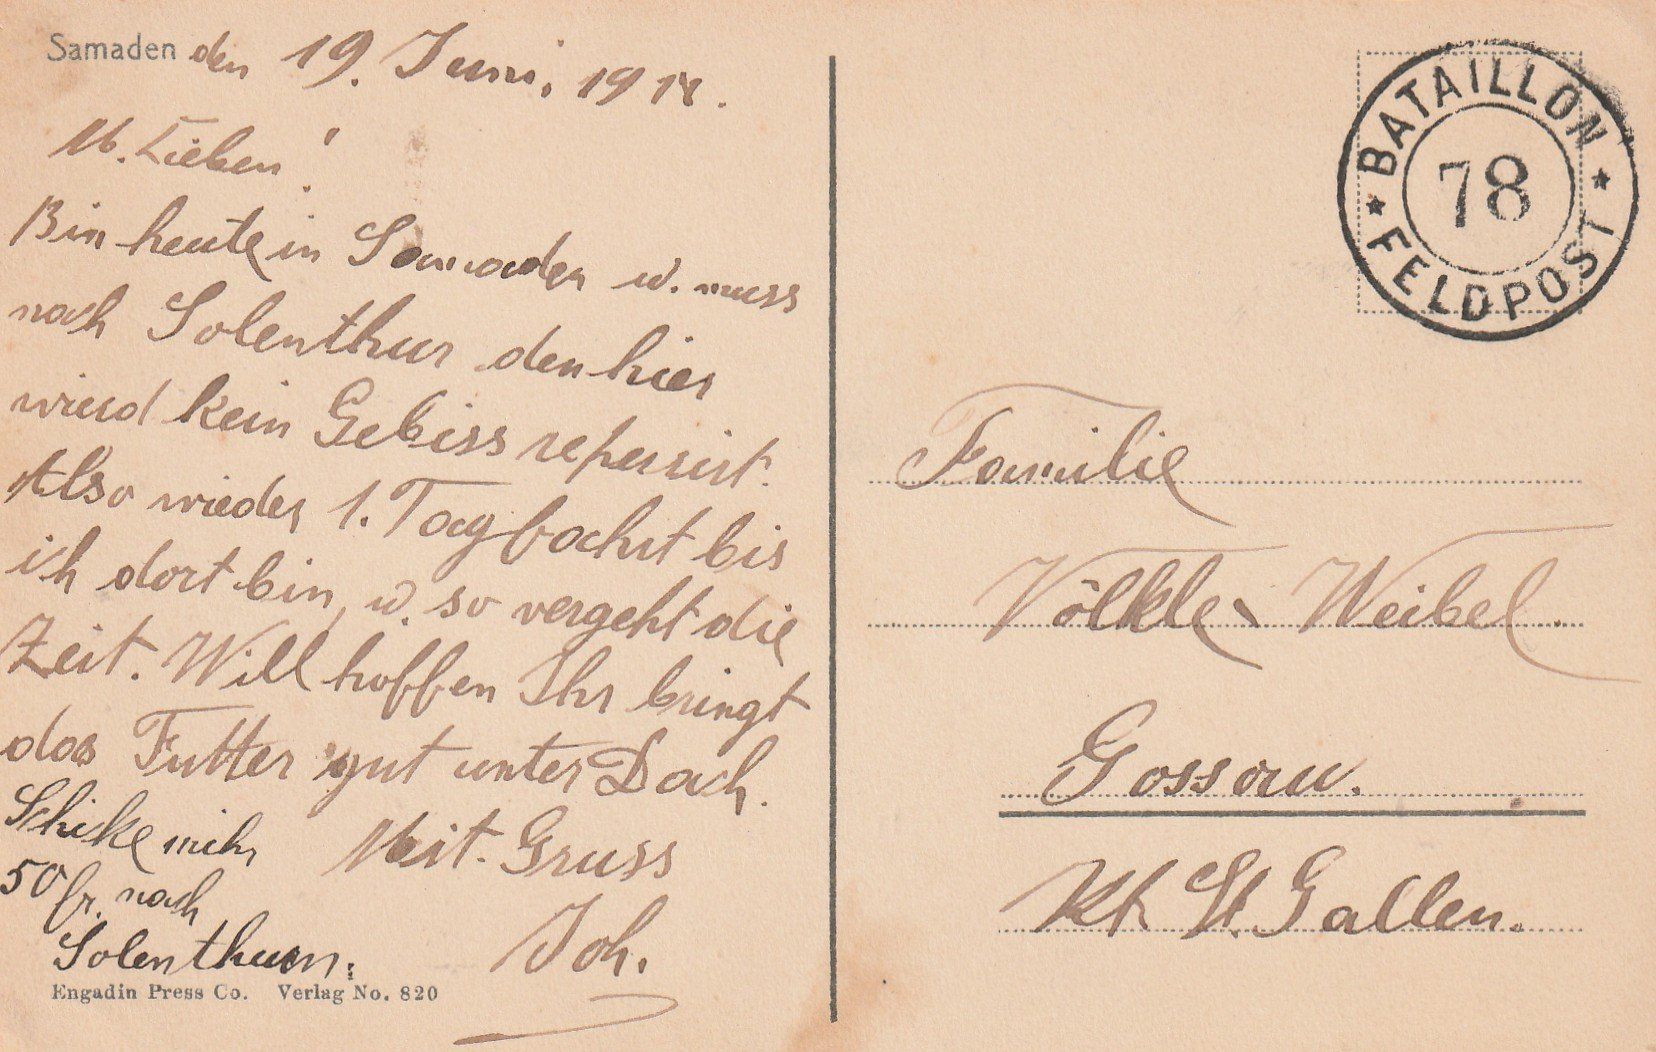 Samaden den 19. Juni, 1918.
M. Lieben!
Bin heute in Samaden u. muss
nach Solenthur den hier
wierd kein Gebiss reperiert.
Also wieder 1. Tag
bis
ich dort bin, u. so vergeht die
Zeit. Will hoffen Ihr bringt
das Futter gut unter Dach.
Mit. Gruss
Joh.
Schike mihr
50 fr. nach
Solenthurn.
Engadin Press Co. Verlag No. 820
BATAILLON
78
FELDPOST
Familie
Völkle- Weibel.
Gossau.
Kt. St. Gallen.